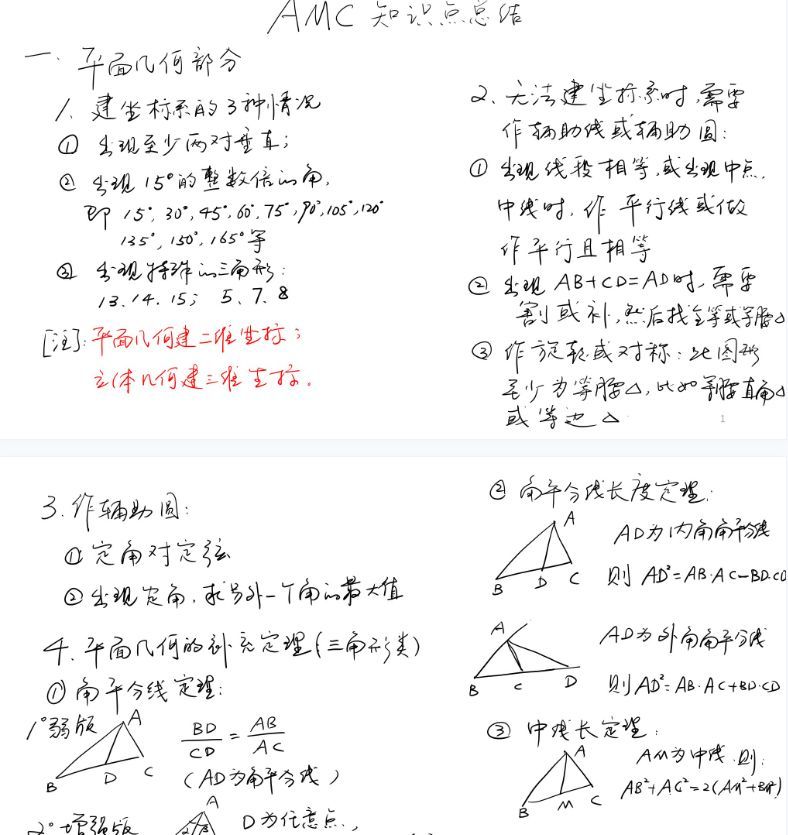 AMC 知识点总结
一、平面几何部分
1、建坐标系的3种情况
① 出现至少两对垂直；
② 出现15°的整数倍的角，
即 15°，30°，45°，60°，75°，90°，105°，120°
135°，150°，165°等
③ 出现特殊的三角形：
13、14、15； 5、7、8
[注]：平面几何建二维坐标；
立体几何建三维坐标。
2、无法建坐标系时，需要
作辅助线或辅助圆：
① 出现线段相等，或出现中点，
中线时，作平行线或做
作平行且相等
② 出现 AB+CD=AD时，需要
割或补，然后找全等或等腰△
③ 作旋转或对称：此图形
至少为等腰△，比如等腰直角△
或等边△
1
3、作辅助圆：
① 定角对定弦
② 出现定角，求另外一个角的最大值
4、平面几何的补充定理（三角形类）
① 角平分线定理：
1°弱版
A
B
D
C
BD/CD = AB/AC
（AD为角平分线）
2°增强版
A
D为任意点，
② 角平分线长度定理：
A
B
D
C
AD为内角角平分线
则 AD²=AB·AC-BD·CD
A
B
C
D
AD为外角角平分线
则 AD²=AB·AC+BD·CD
③ 中线长定理：
A
B
M
C
AM为中线，则：
AB²+AC²=2(AM²+BM²)